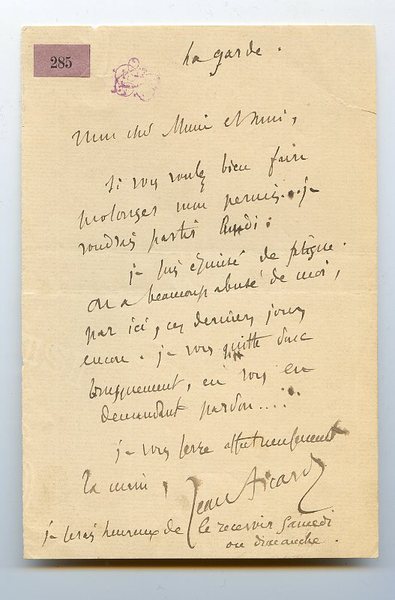 285
La garde.
Mon cher Maire et ami,
Si vous voulez bien faire
prolonger mon permis... je
voudrais partir lundi.
je suis épuisé de fatigue.
on a beaucoup abusé de moi,
par ici, ces derniers jours
encore. je vous quitte donc
brusquement, en vous en
demandant pardon....
je vous serre affectueusement
la main,
Jean Aicard
je serai heureux de le recevoir samedi
ou dimanche.